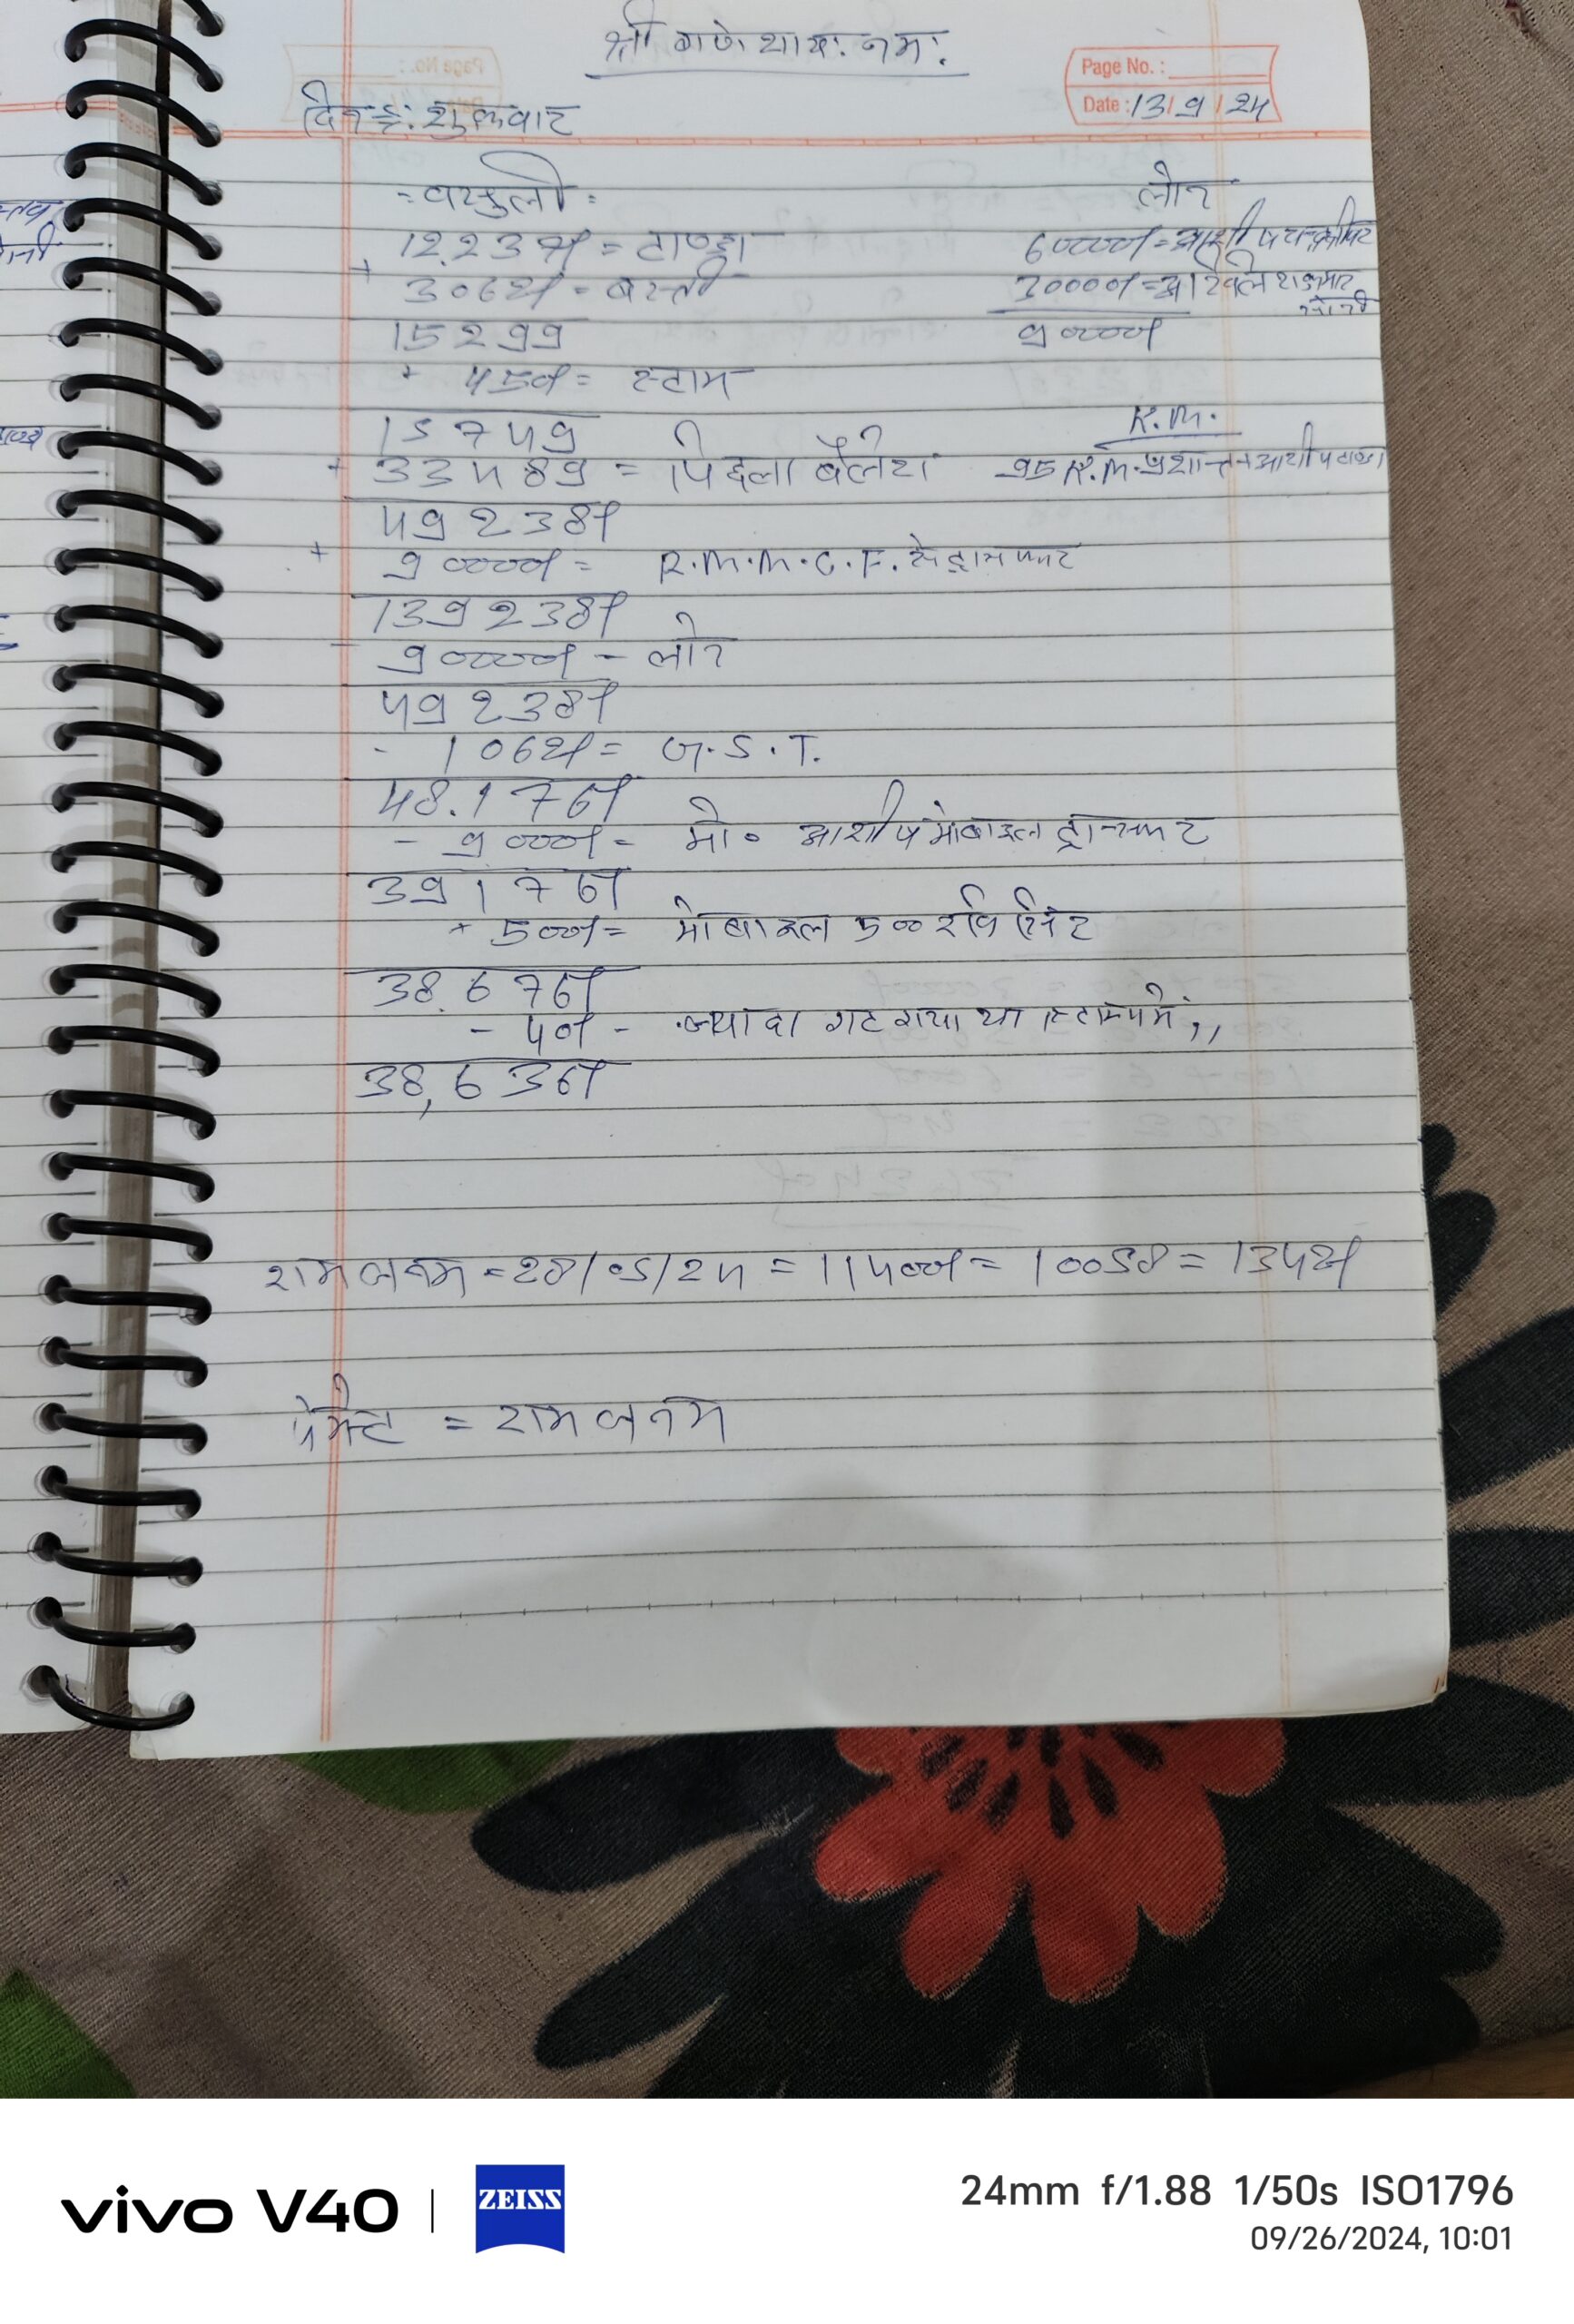 श्री गणेशाय: नम:
Page No. :
Date : 13/9/24
दिन है: शुक्रवार
= वसुली =
लोन
12,237/- = टाण्डा
60000/- = आशीष
+ 3062/- = बस्ती
30000/- = अखिलेश कुमार सोनी
15299
90000/-
+ 450/- = स्टाम
15749
R.M.
+ 33489 = पिछला बैलेंश
95 R.M. प्रशान्त + आशीष टाण्डा
49238/-
+ 90000/- = R.M.M.C.F. से ट्रान्सफर
139238/-
- 90000/- - लोन
49238/-
- 1062/- = G.S.T.
48.176/-
- 9000/- = मो० आशीष मोबाइल ट्रान्सफर
39176/-
+ 500/- = मोबाइल 500 रवि
38.676/-
- 40/- - ज्यादा गट गया था स्टाम्प में,,
38,636/-
रामजनम = 28/05/24 = 11400/- = 10058 = 1342/-
पेमेन्ट = रामजनम
vivo V40 | ZEISS
24mm f/1.88 1/50s ISO1796
09/26/2024, 10:01